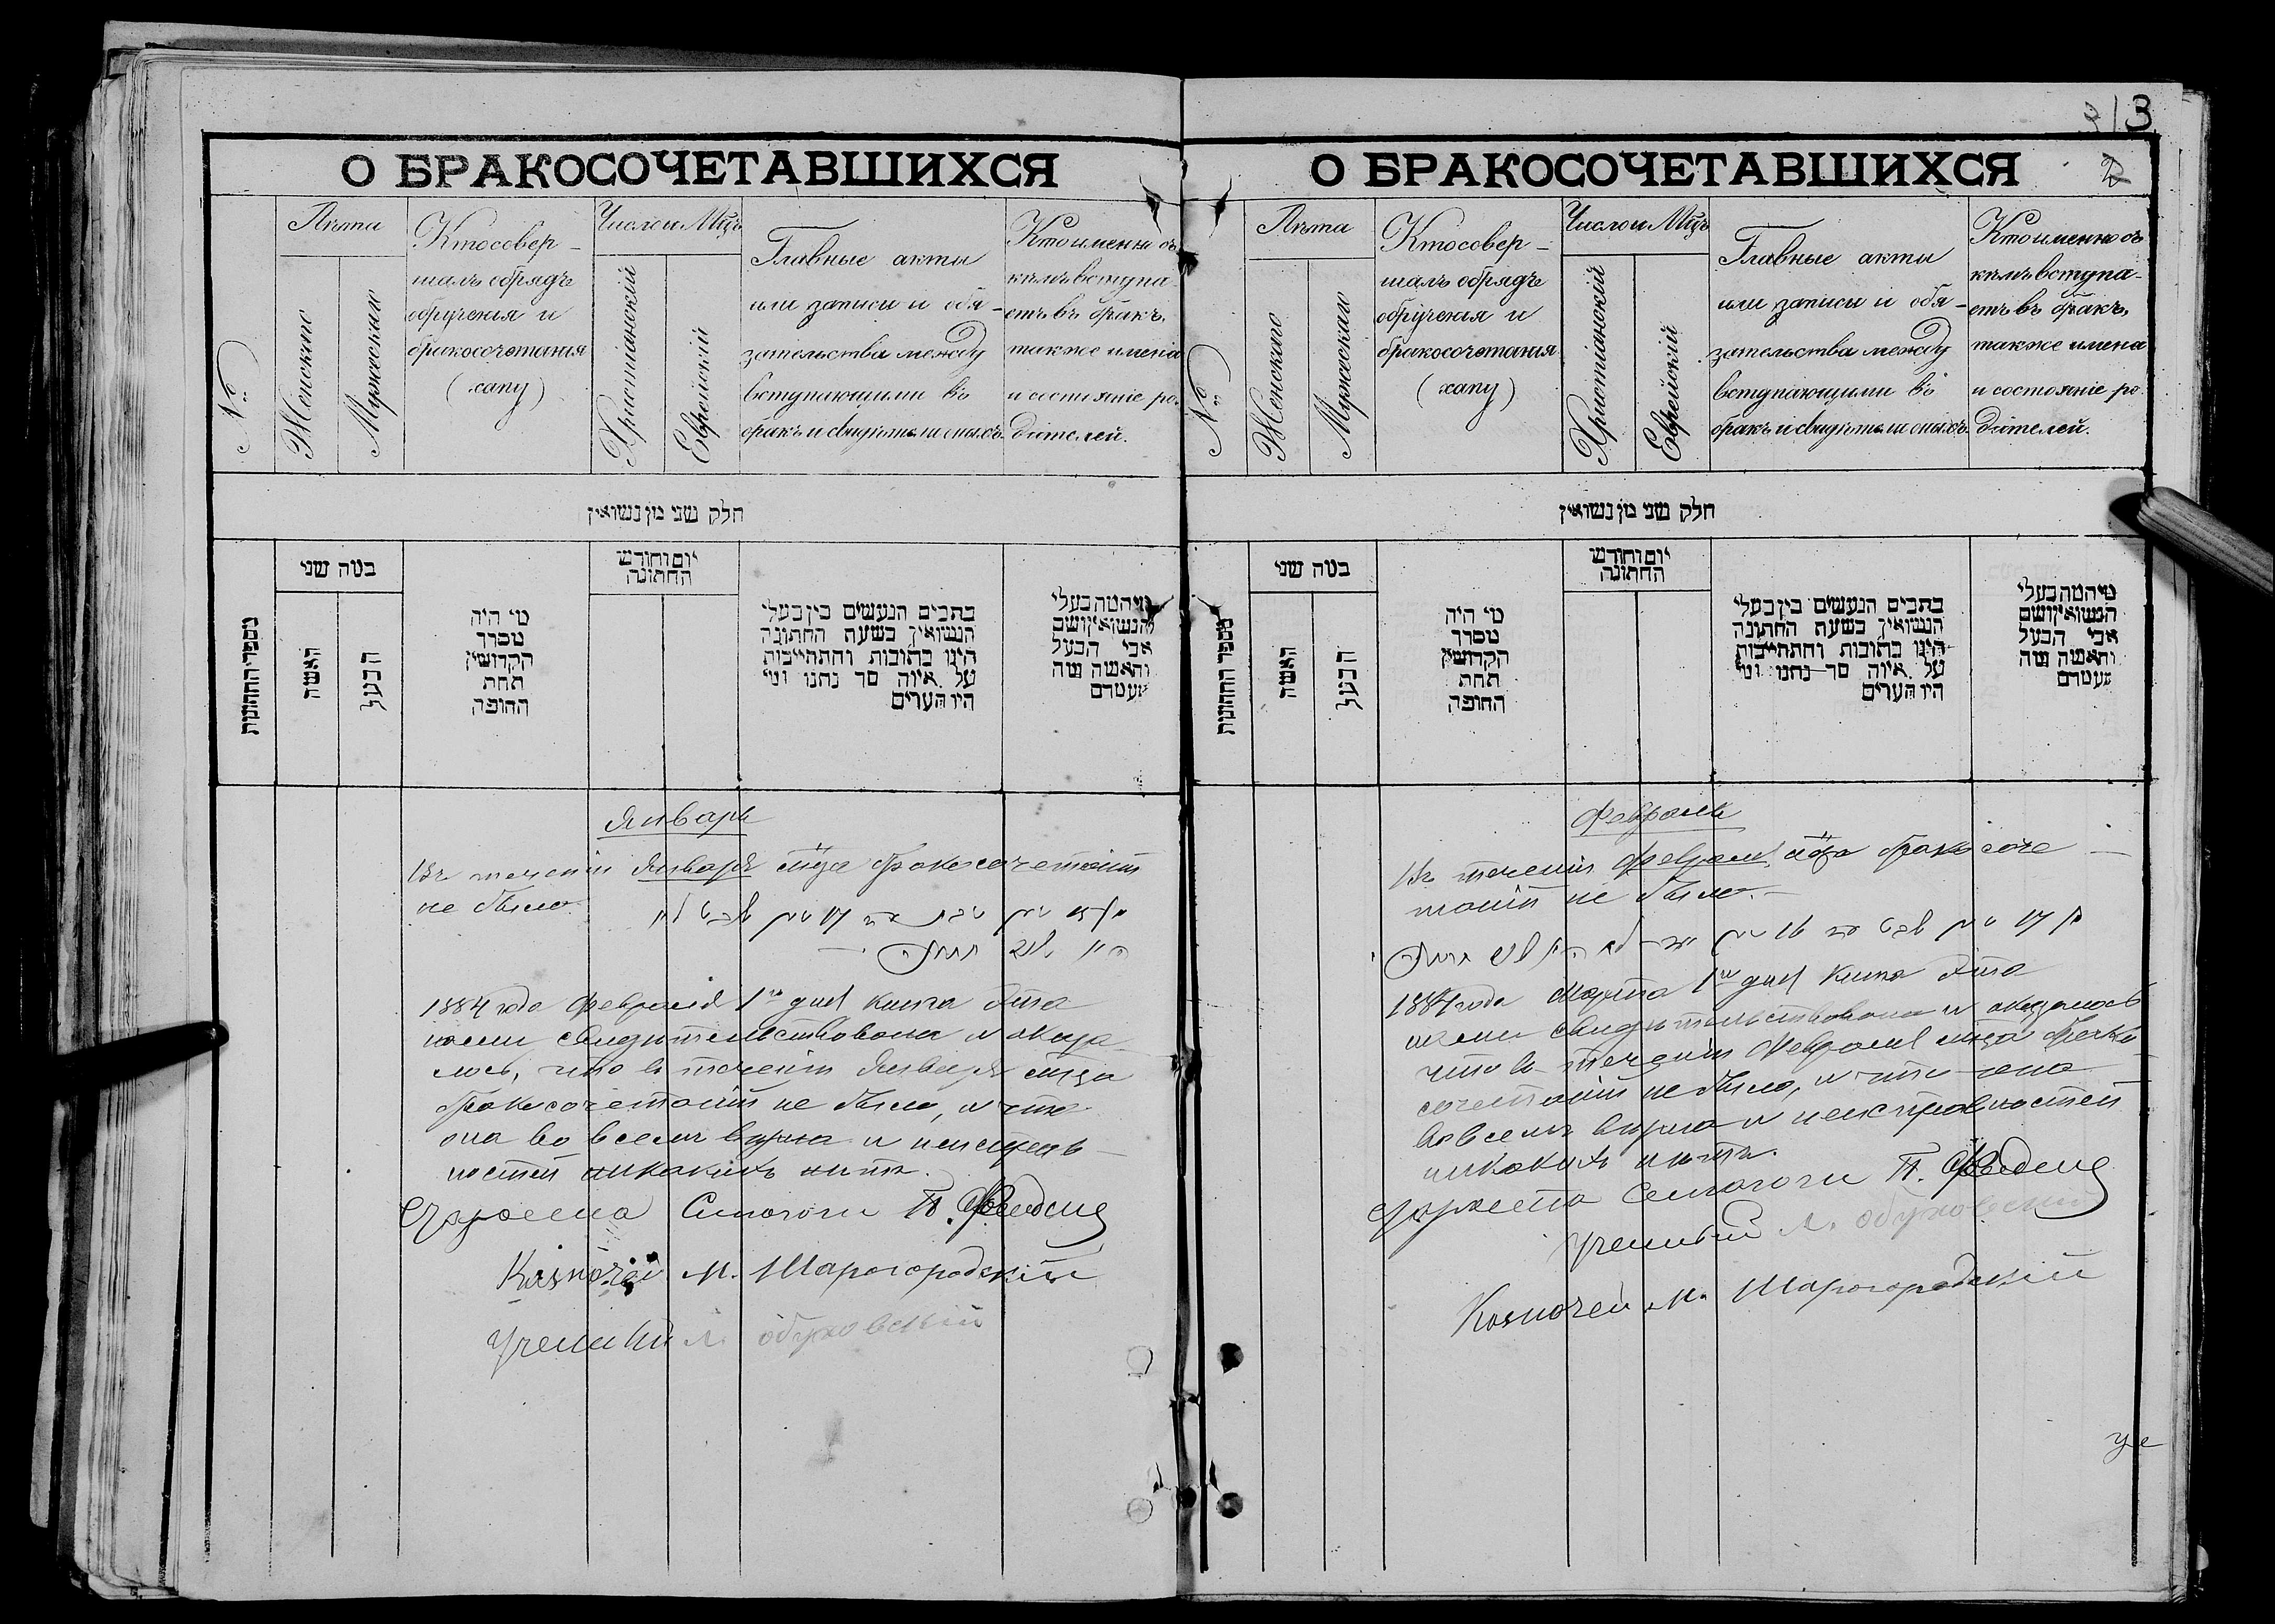 О БРАКОСОЧЕТАВШИХСЯ
№
Лѣта
Женскаго
Мужескаго
Кто совер-
шалъ обрядъ
обрученія и
бракосочетанія
(хапу)
Число и Мцъ
Христіанскій
Еврейскій
Главные акты
или записи и обя-
зательства между
вступающими въ
бракъ и свидѣтели оныхъ.
Кто именно съ
кѣмъ вступа-
етъ въ бракъ,
также имена
и состояніе ро-
дителей.
חלק שני מן נשואין
מספר החתונות
כמה שני
האשה
הבעל
מי היה
מסדר
הקדושין
תחת
החופה
יום וחודש
החתונה
כתבים הנעשים בין בעלי
הנשואין בשעת החתונה
היינו כתובות והתחייבות
על איזה סך נתנו ומי
היו העדים
מי המה בעלי
הנשואין ושם
אבי הבעל
והאשה ומה
מעמדם
Январь
Въ теченіи Января мца бракосочетаній
не было.
1884 года Февраля 1го дня книга эта
нами свидѣтельствована и оказа-
лось, что въ теченіи Января мца
бракосочетаній не было, и что
она во всемъ вѣрна и неисправ-
ностей никакихъ нѣтъ.
Староста Синагоги П.
Казначей М. Шарогородскій
Ученый Л. Обуховскій
3
О БРАКОСОЧЕТАВШИХСЯ
2
№
Лѣта
Женскаго
Мужескаго
Кто совер-
шалъ обрядъ
обрученія и
бракосочетанія
(хапу)
Число и Мцъ
Христіанскій
Еврейскій
Главные акты
или записи и обя-
зательства между
вступающими въ
бракъ и свидѣтели оныхъ.
Кто именно съ
кѣмъ вступа-
етъ въ бракъ,
также имена
и состояніе ро-
дителей.
חלק שני מן נשואין
מספר החתונות
כמה שני
האשה
הבעל
מי היה
מסדר
הקדושין
תחת
החופה
יום וחודש
החתונה
כתבים הנעשים בין בעלי
הנשואין בשעת החתונה
היינו כתובות והתחייבות
על איזה סך נתנו ומי
היו העדים
מי המה בעלי
הנשואין ושם
אבי הבעל
והאשה ומה
מעמדם
Февраль
Въ теченіи Февраля мца бракосоче-
таній не было.
1884 года Марта 1го дня книга эта
нами свидѣтельствована и оказалось
что въ теченіи Февраля мца брако-
сочетаній не было, и что она
во всемъ вѣрна и неисправностей
никакихъ нѣтъ.
Староста Синагоги П.
Ученый Л. Обуховскій
Казначей М. Шарогородскій